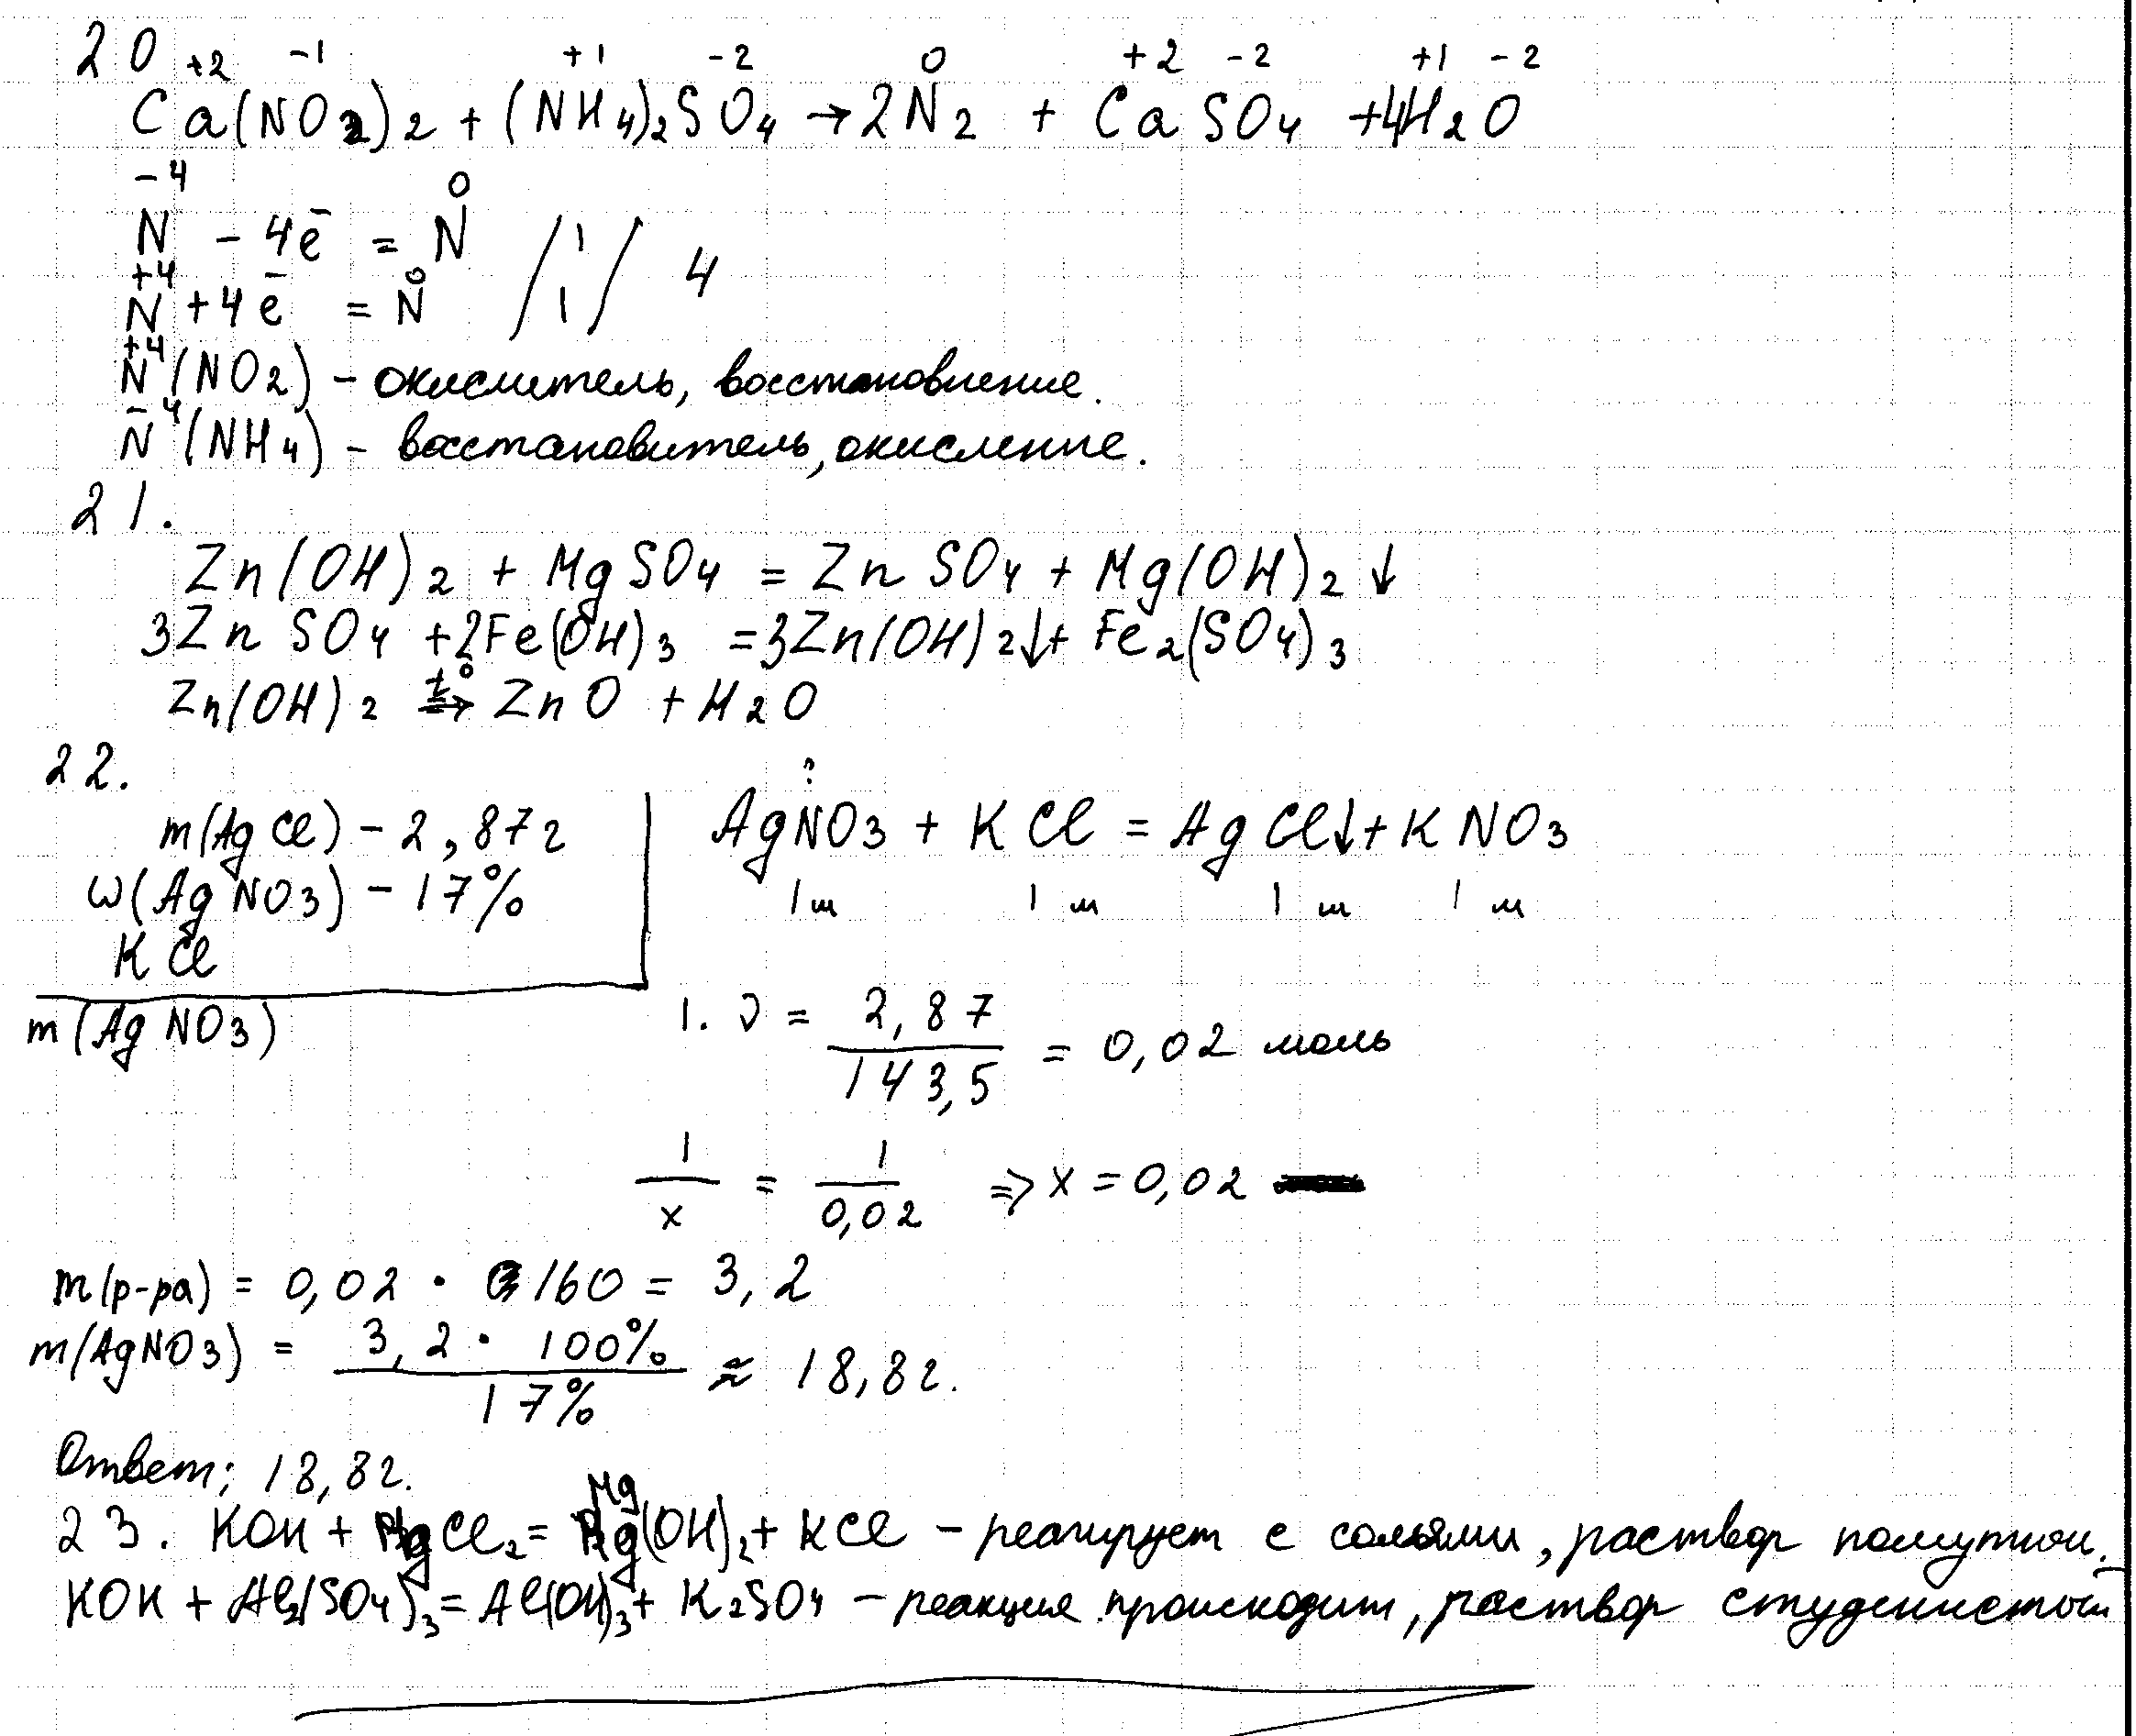 20
+2 -1 +1 -2 0 +2 -2 +1 -2
Ca(NO2)2 + (NH4)2SO4 → 2N2 + CaSO4 + 4H2O
-4 0
N - 4e̅ = N / 1 / 4
+4 0
N + 4e̅ = N / 1 /
+4
N (NO2) - окислитель, восстановление.
-4
N (NH4) - восстановитель, окисление.
21.
Zn(OH)2 + MgSO4 = ZnSO4 + Mg(OH)2↓
3ZnSO4 + 2Fe(OH)3 = 3Zn(OH)2↓ + Fe2(SO4)3
t°
Zn(OH)2 → ZnO + H2O
22.
?
m(AgCl) - 2,87г AgNO3 + KCl = AgCl↓ + KNO3
ω(AgNO3) - 17% 1м 1м 1м 1м
KCl
m(AgNO3)
1. ν = 2,87 / 143,5 = 0,02 моль
1 / x = 1 / 0,02 ⇒ x = 0,02
m(р-ра) = 0,02 · 160 = 3,2
m(AgNO3) = 3,2 · 100% / 17% ≈ 18,8г.
Ответ; 18,8г.
23. KOH + MgCl2 = Mg(OH)2 + KCl - реагирует с солями, раствор помутнел.
KOH + Al2(SO4)3 = Al(OH)3 + K2SO4 - реакция происходит, раствор студенистый